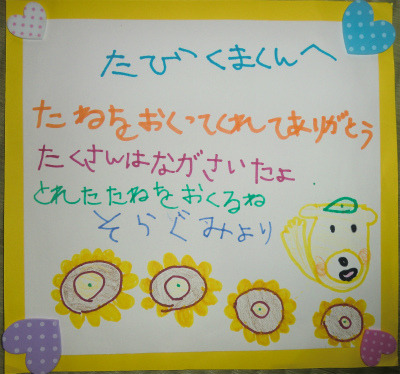 たびくまくんへ
たねをおくってくれてありがとう
たくさんはながさいたよ
とれたたねをおくるね
そらぐみより